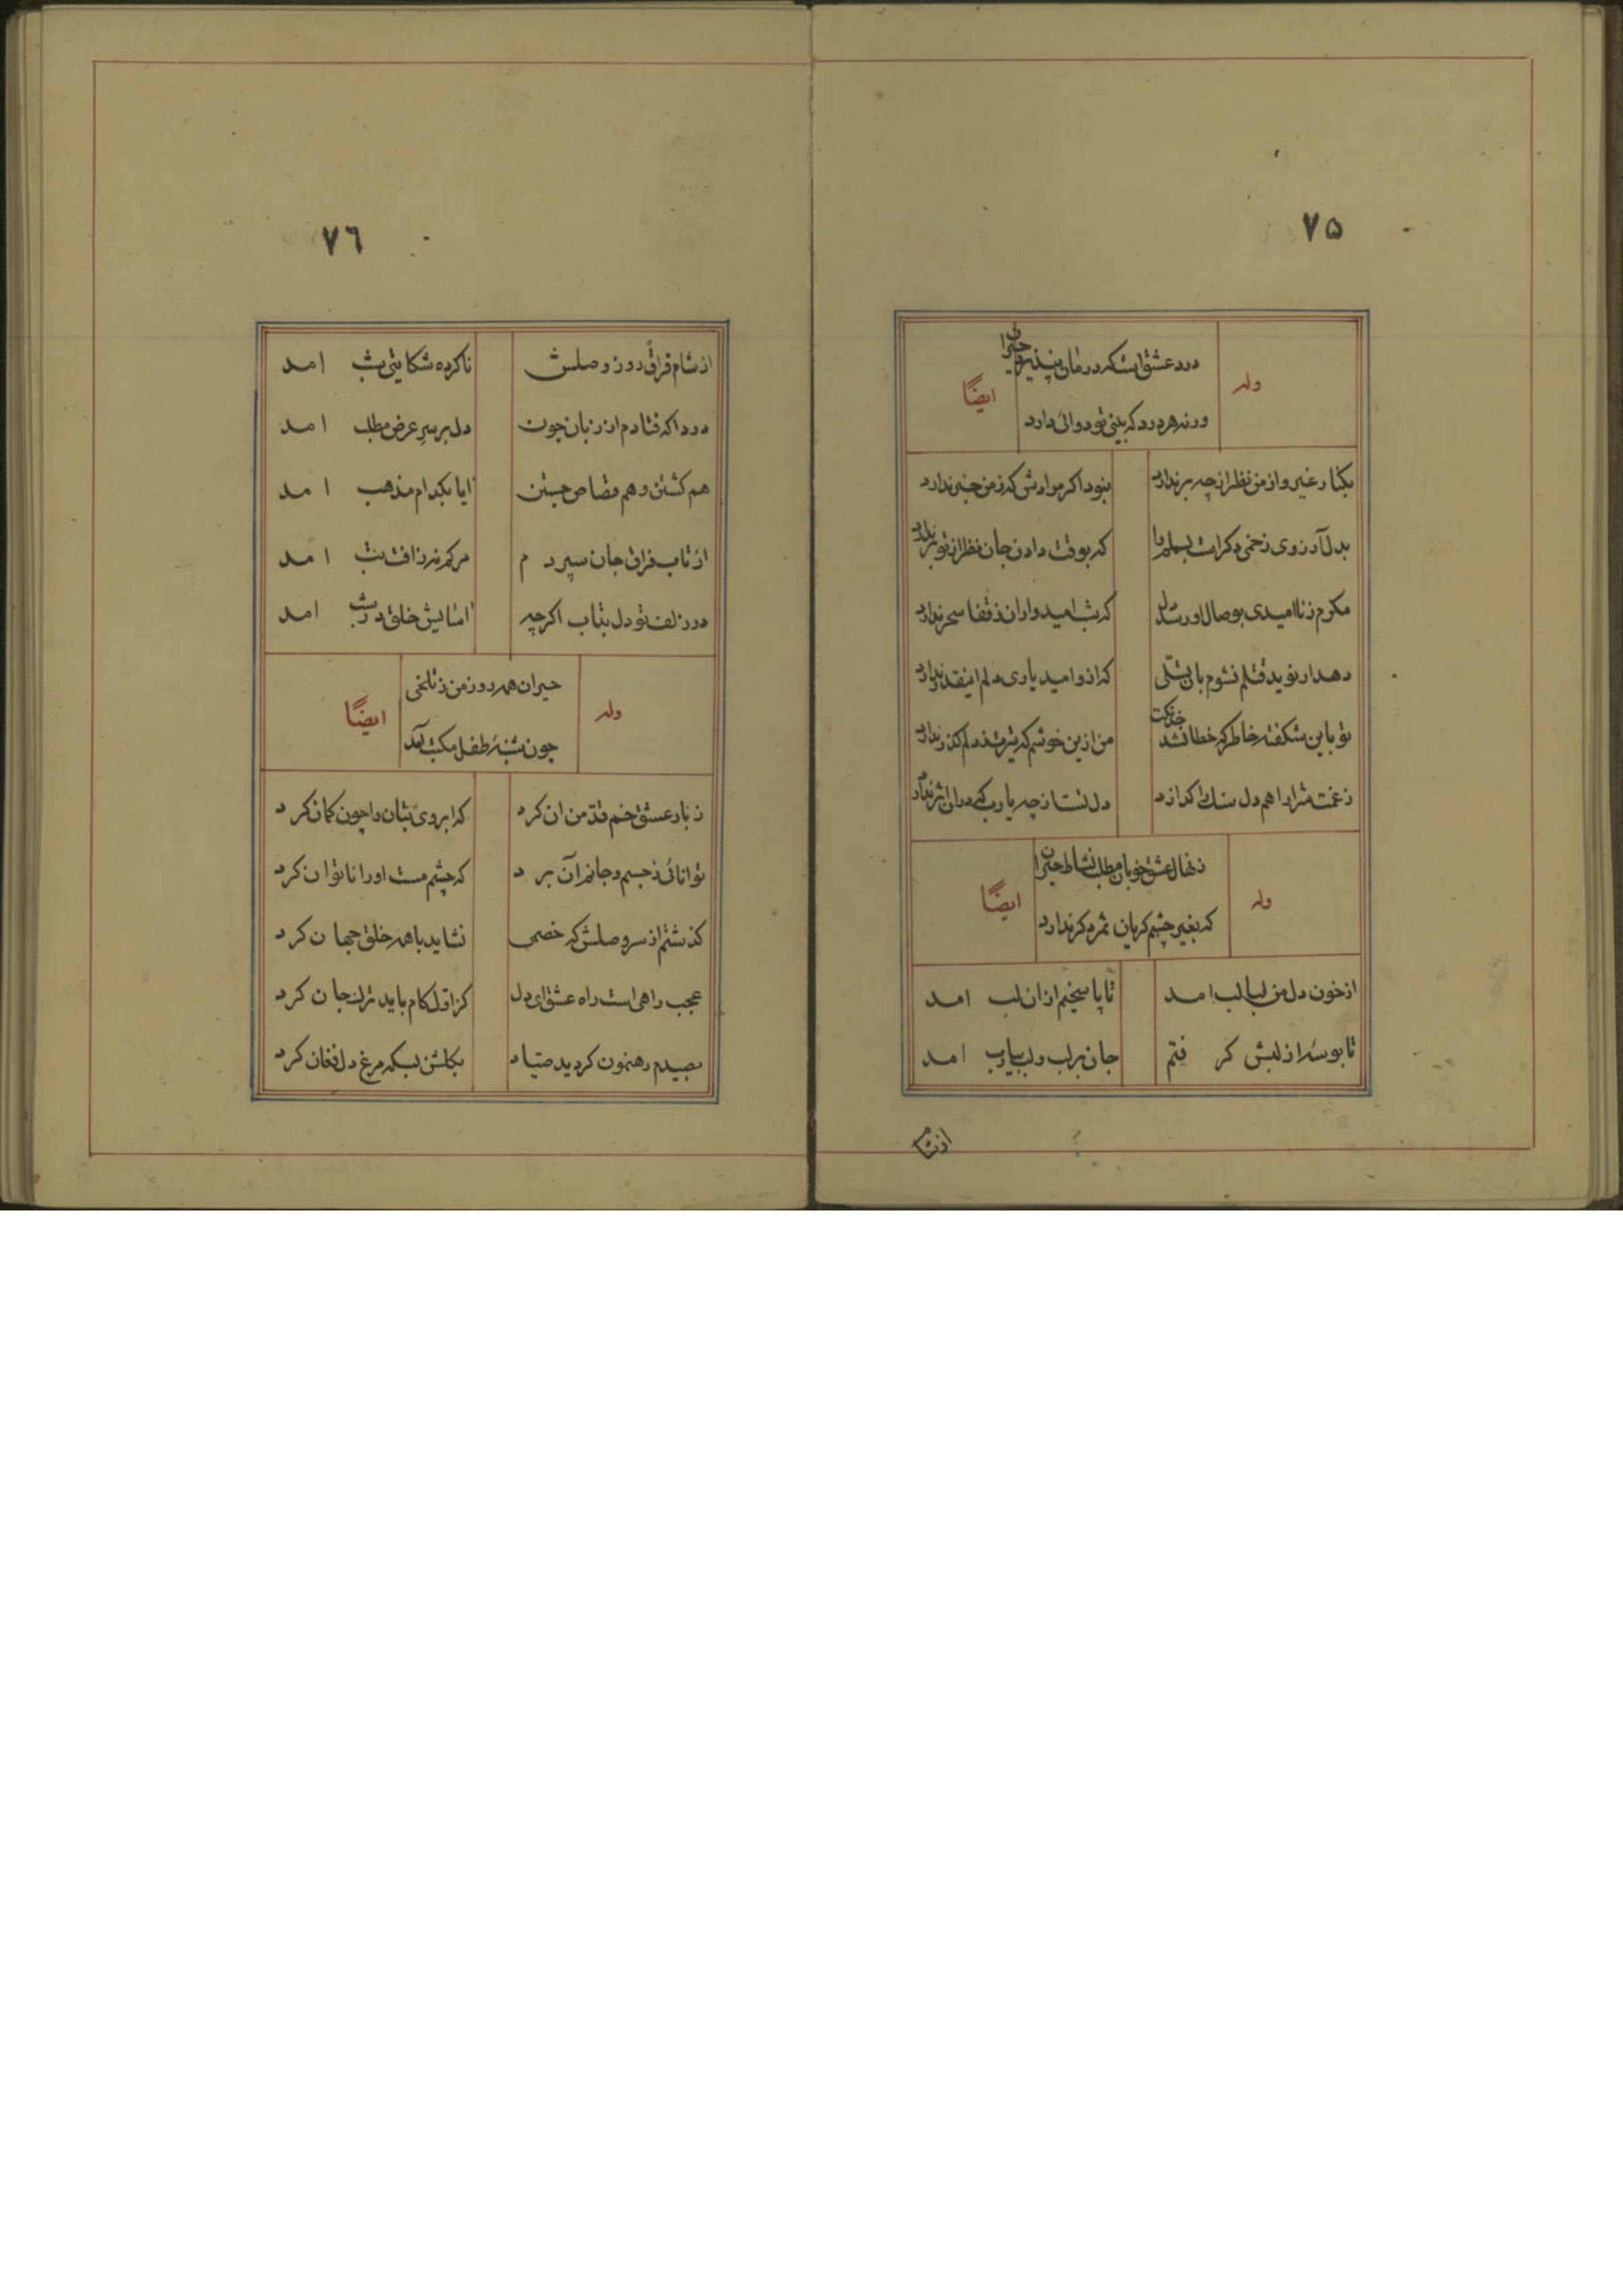 ۷۵
وله
درد عشق است که درمان نپذیرد حیرانرا
ورنه هر درد که بینی تو دوائی دارد
ایضاً
بکنار غیر و از من نظر از چه بر ندارد
نبود اکر مرادش که ز من خبر ندارد
بدل آرزوی زخمی دکر است بسملم را
که بوقت دادن جان نظر از تو بر ندارد
مکرم ز ناامیدی بوصال او رسد دل
که شب امیدواران ز قفا سحر ندارد
دهد ار نوید قتلم نشوم بان تسلّی
که ازو امید یاری دلم اینقدر ندارد
تو باین شکفته خاطر که خطا نشد خدنکت
من ازین خوشم که تیرت ز دلم کذر ندارد
ز غمت شراراهم دل سنك را کدازد
دل تست از چه یا رب که دران اثر ندارد
وله
ز نهال عشق خوبان مطلب نشاط حیرانرا
که بغیر چشم کریان ثمر دکر ندارد
ایضاً
از خون دل من لبالب امد
تا پاسخیم ازان لب امد
تا بوسهٔ از لبش کرفتم
جان بر لب و لب بیارب امد
از شام
۷٦
از شام فراق روز وصلش
ناکرده شکایتی شب امد
دردا که فتادم از زبان چون
دل بر سر عرض مطلب امد
هم کشتن و هم قصاص جستن
ایا بکدام مذهب امد
از تاب فراق جان سپردم
مرکم نه ز افت تب امد
در زلف تو دل بتاب اکرچه
اسایش خلق در شب امد
وله
حیران همه روز من ز تلخی
چون شنبهٔ طفل مکتب آمد
ایضاً
ز بار عشق خم قدّ من ان کرد
که ابروی بتان را چون کمان کرد
توانائی ز جسم و جانم آن برد
که چشم مست اورا ناتوان کرد
کذشتم از سر وصلش که خصمی
نشاید با همه خلق جهان کرد
عجب راهی است راه عشق ای دل
کز اوّل کام باید ترك جان کرد
بصیدم رهنمون کردید صیّاد
بکلشن بسکه مرغ دل فغان کرد